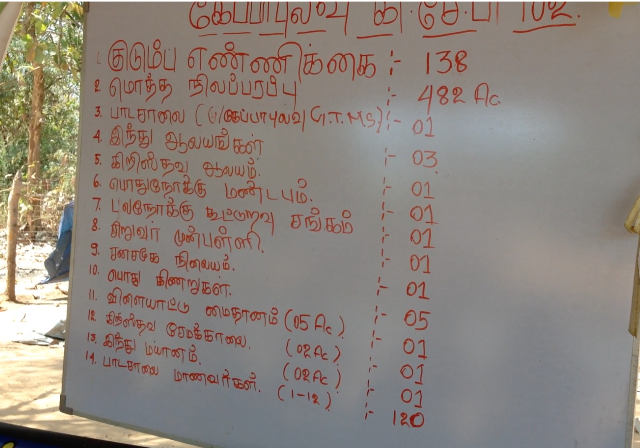 கேப்பாபுலவு கி.சே.பி
1. குடும்ப எண்ணிக்கை :- 138
2. மொத்த நிலப்பரப்பு :- 482 Ac
3. பாடசாலை (மு/கேப்பாபுலவு G.T.M.S) :- 01
4. இந்து ஆலயங்கள் :- 03
5. கிறிஸ்தவ ஆலயம். :- 01
6. பொதுநோக்கு மண்டபம். :- 01
7. பலநோக்கு கூட்டுறவு சங்கம் :- 01
8. சிறுவர் முன்பள்ளி. :- 01
9. சனசமூக நிலையம். :- 01
10. பொது கிணறுகள். :- 05
11. விளையாட்டு மைதானம் (05 Ac) :- 01
12. கிறிஸ்தவ சேமக்காலை. (02 Ac) :- 01
13. இந்து மயானம். (02 Ac) :- 01
14. பாடசாலை மாணவர்கள். (1-12) :- 120